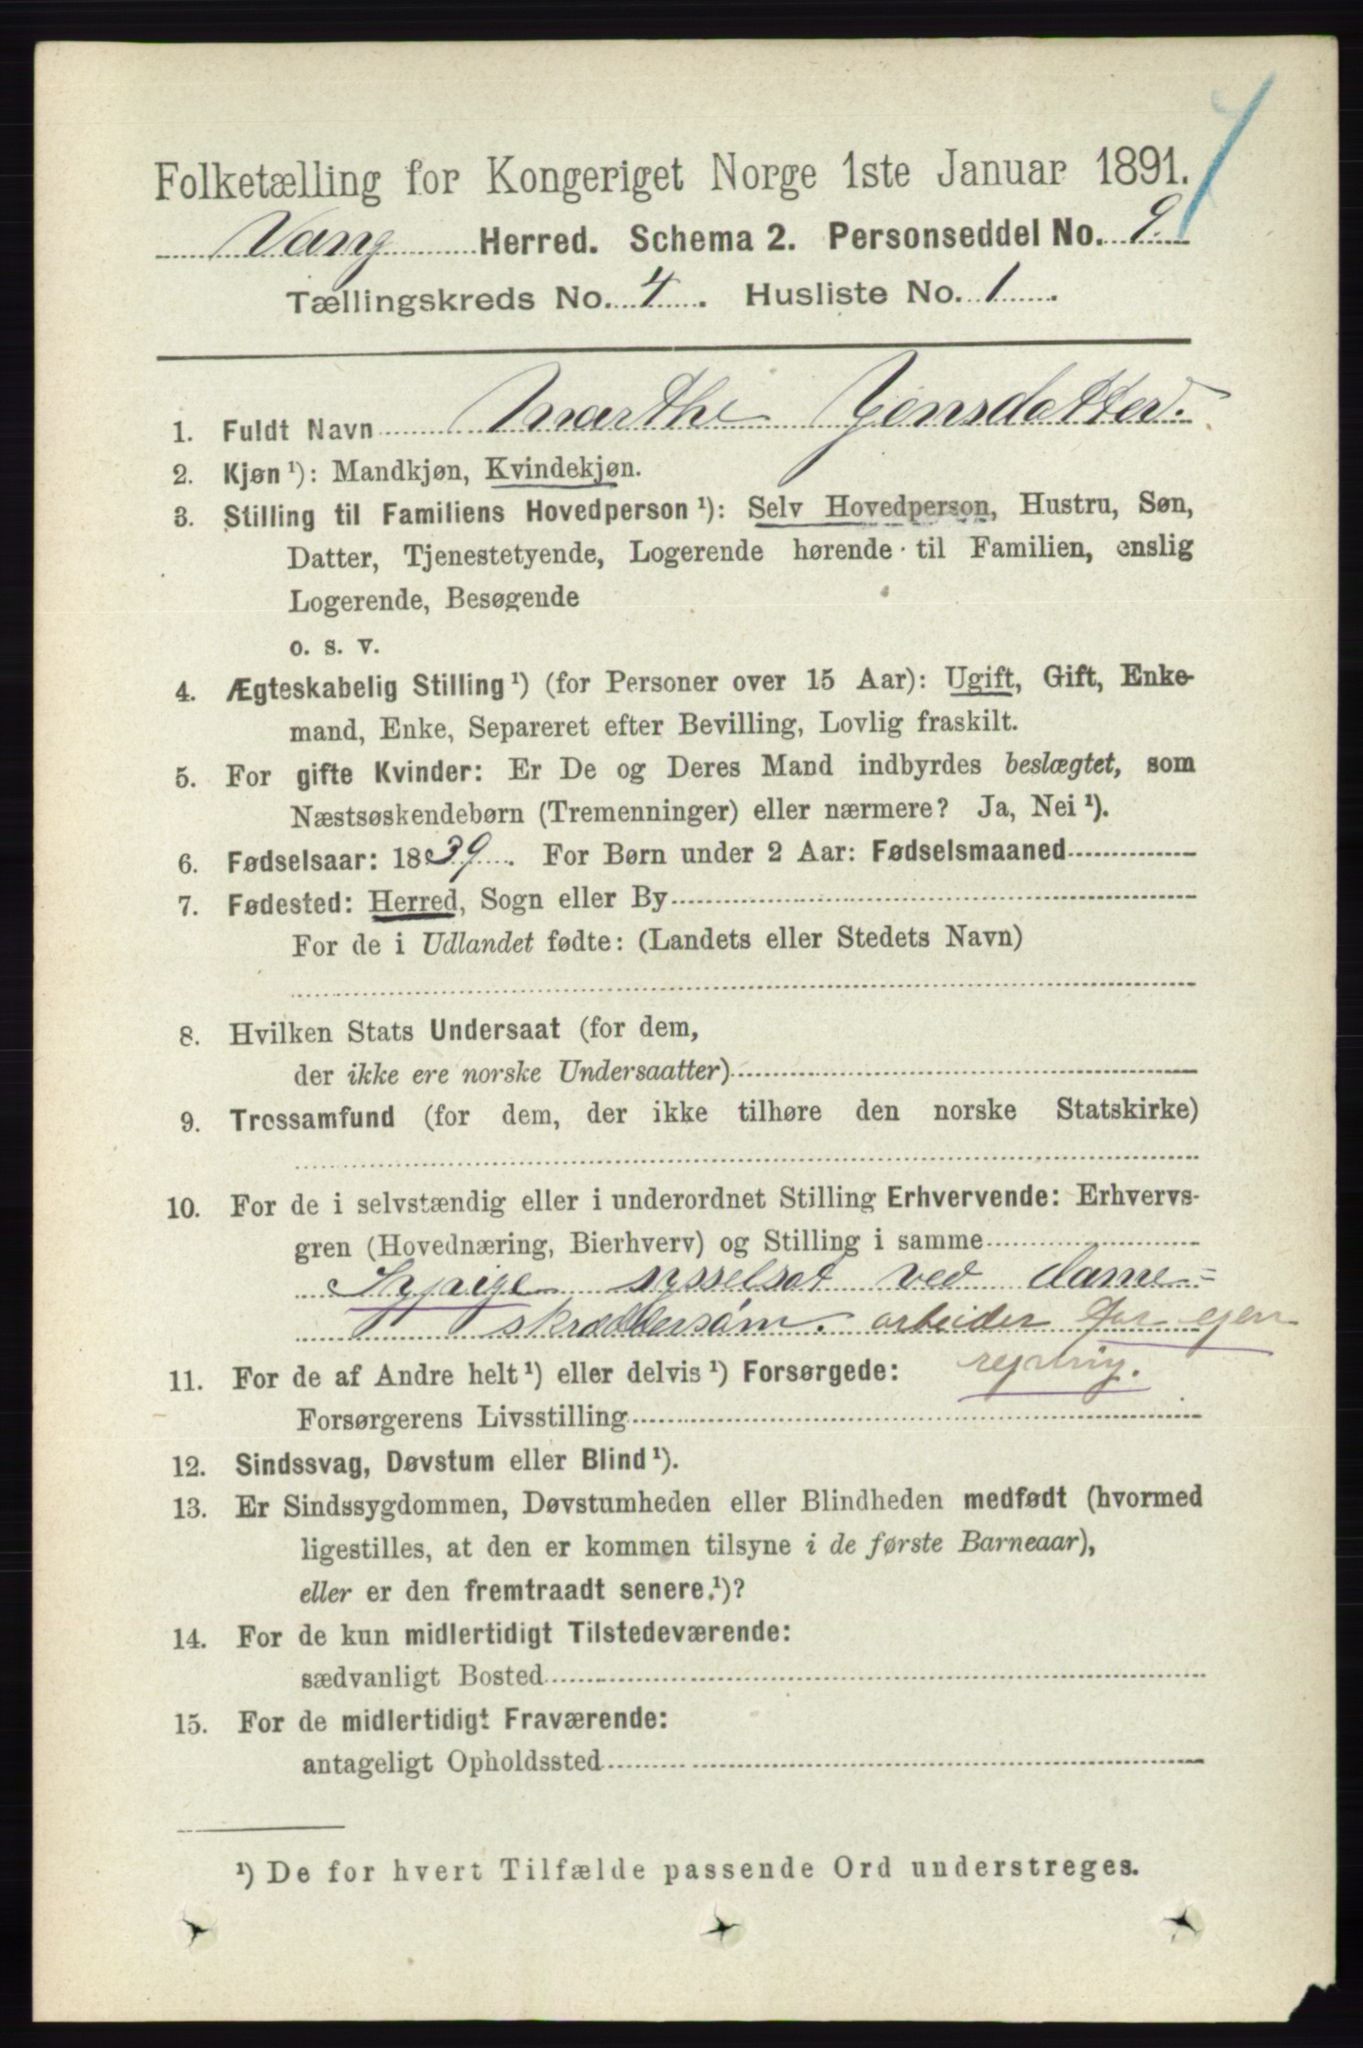 Folketælling for Kongeriget Norge 1ste Januar 1891.
Vang Herred. Schema 2. Personseddel No. 9.
Tællingskreds No. 4. Husliste No. 1.
1. Fuldt Navn Marthe Jensdatter.
2. Kjøn ¹): Mandkjøn, Kvindekjøn.
3. Stilling til Familiens Hovedperson ¹): Selv Hovedperson, Hustru, Søn,
Datter, Tjenestetyende, Logerende hørende til Familien, enslig
Logerende, Besøgende
o. s. v.
4. Ægteskabelig Stilling ¹) (for Personer over 15 Aar): Ugift, Gift, Enke-
mand, Enke, Separeret efter Bevilling, Lovlig fraskilt.
5. For gifte Kvinder: Er De og Deres Mand indbyrdes beslægtet, som
Næstsøskendebørn (Tremenninger) eller nærmere? Ja, Nei ¹).
6. Fødselsaar: 1839. For Børn under 2 Aar: Fødselsmaaned
7. Fødested: Herred, Sogn eller By
For de i Udlandet fødte: (Landets eller Stedets Navn)
8. Hvilken Stats Undersaat (for dem,
der ikke ere norske Undersaatter)
9. Trossamfund (for dem, der ikke tilhøre den norske Statskirke)
10. For de i selvstændig eller i underordnet Stilling Erhvervende: Erhvervs-
gren (Hovednæring, Bierhverv) og Stilling i samme
Sypige sysselsat ved dame=
skræddersøm. arbeider for egen
regning.
11. For de af Andre helt ¹) eller delvis ¹) Forsørgede:
Forsørgerens Livsstilling
12. Sindssvag, Døvstum eller Blind ¹).
13. Er Sindssygdommen, Døvstumheden eller Blindheden medfødt (hvormed
ligestilles, at den er kommen tilsyne i de første Barneaar),
eller er den fremtraadt senere. ¹)?
14. For de kun midlertidigt Tilstedeværende:
sædvanligt Bosted
15. For de midlertidigt Fraværende:
antageligt Opholdssted
¹) De for hvert Tilfælde passende Ord understreges.